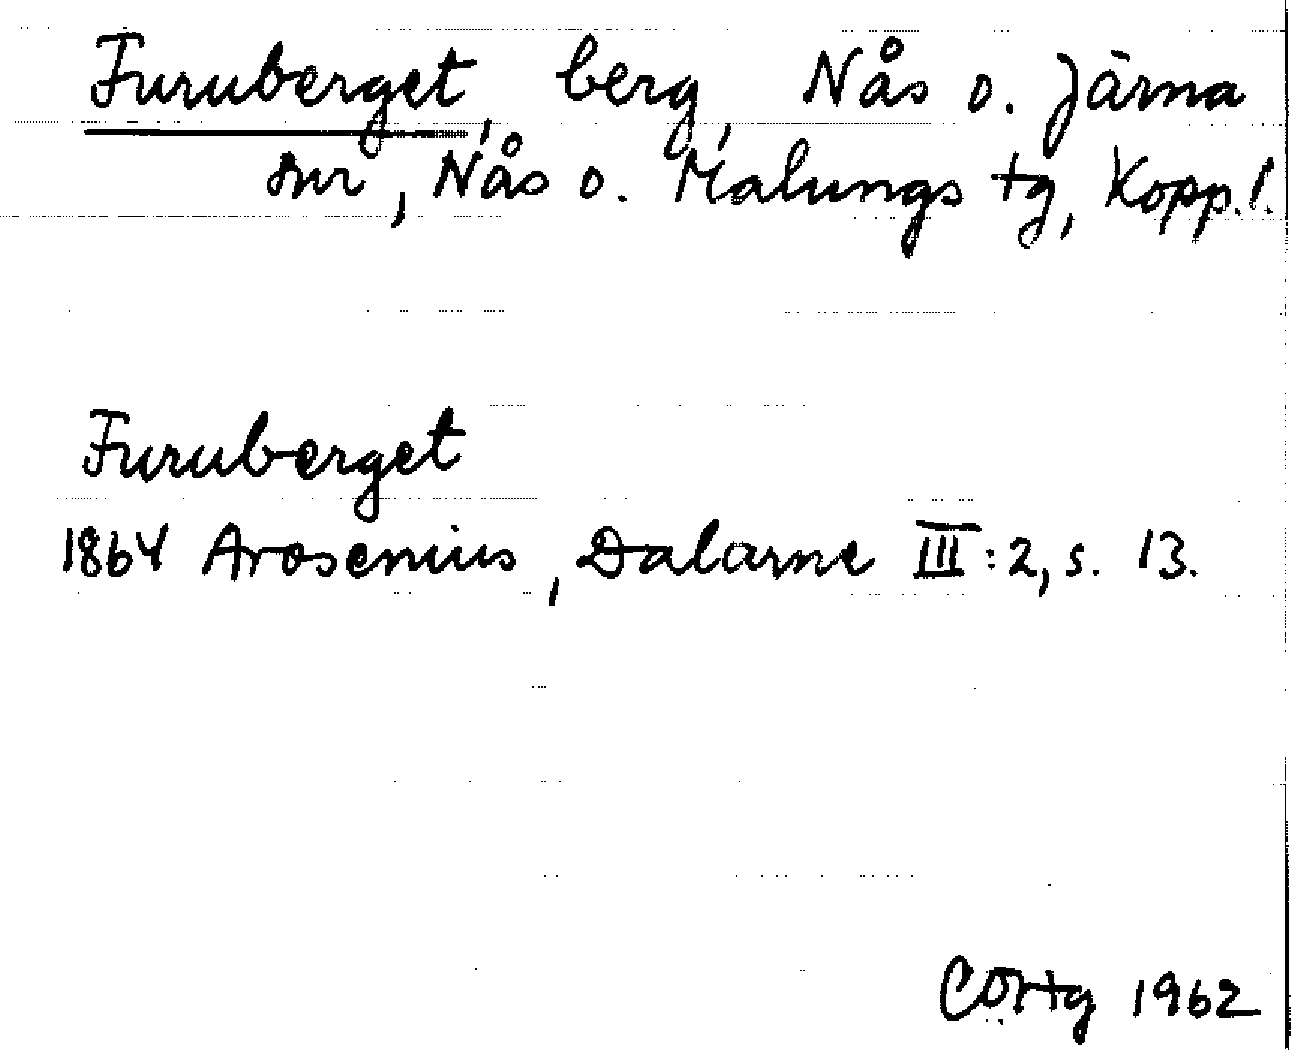 Furuberget, berg, Nås o. Järna
snr, Nås o. Malungs tg, Kopp. l.
Furuberget
1864 Arosenius, Dalarne III:2, s. 13.
COrtg 1962